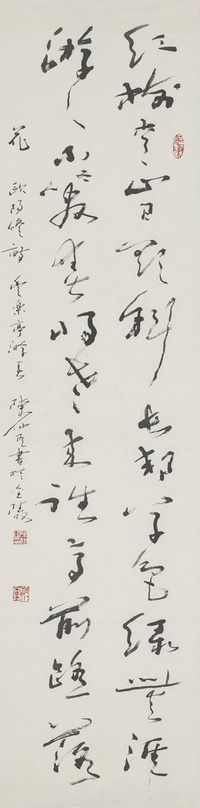 紅樹青山日欲斜長郊草色綠無涯
游人不管春將老來往亭前踏落
花 歐陽修詩 豐樂亭游春 陳仙書於金陵